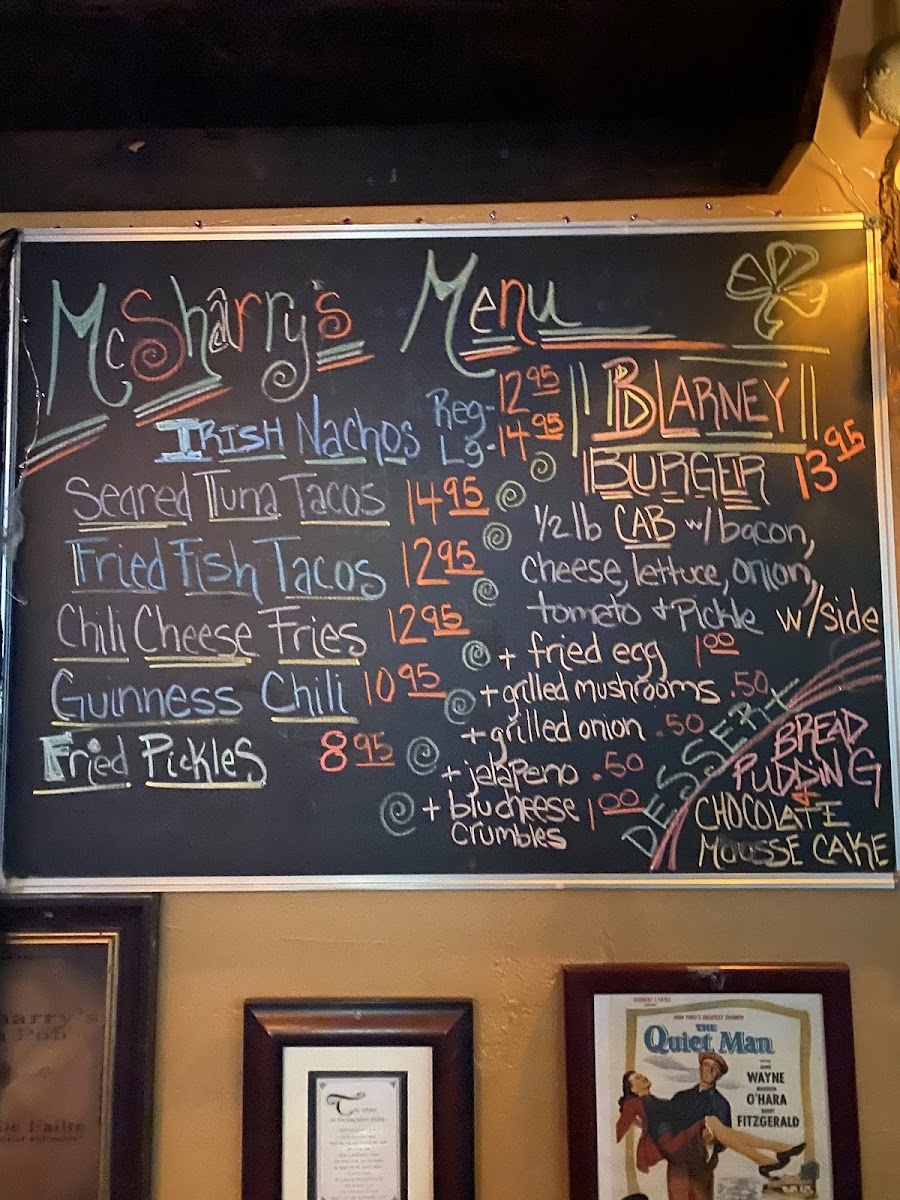 McSharry's Menu
Irish Nachos Reg- 12 95
Lg- 14 95
Seared Tuna Tacos 14 95
Fried Fish Tacos 12 95
Chili Cheese Fries 12 95
Guinness Chili 10 95
Fried Pickles 8 95
BLARNEY
BURGER 13 95
1/2 lb CAB w/ bacon,
cheese, lettuce, onion,
tomato + Pickle w/side
+ fried egg 1 00
+ grilled mushrooms .50
+ grilled onion .50
+ jalapeno .50
+ blu cheese 1 00
Crumbles
DESSERT
BREAD
PUDDING
CHOCOLATE
MOUSSE CAKE
THE
Quiet Man
WAYNE
O'HARA
FITZGERALD